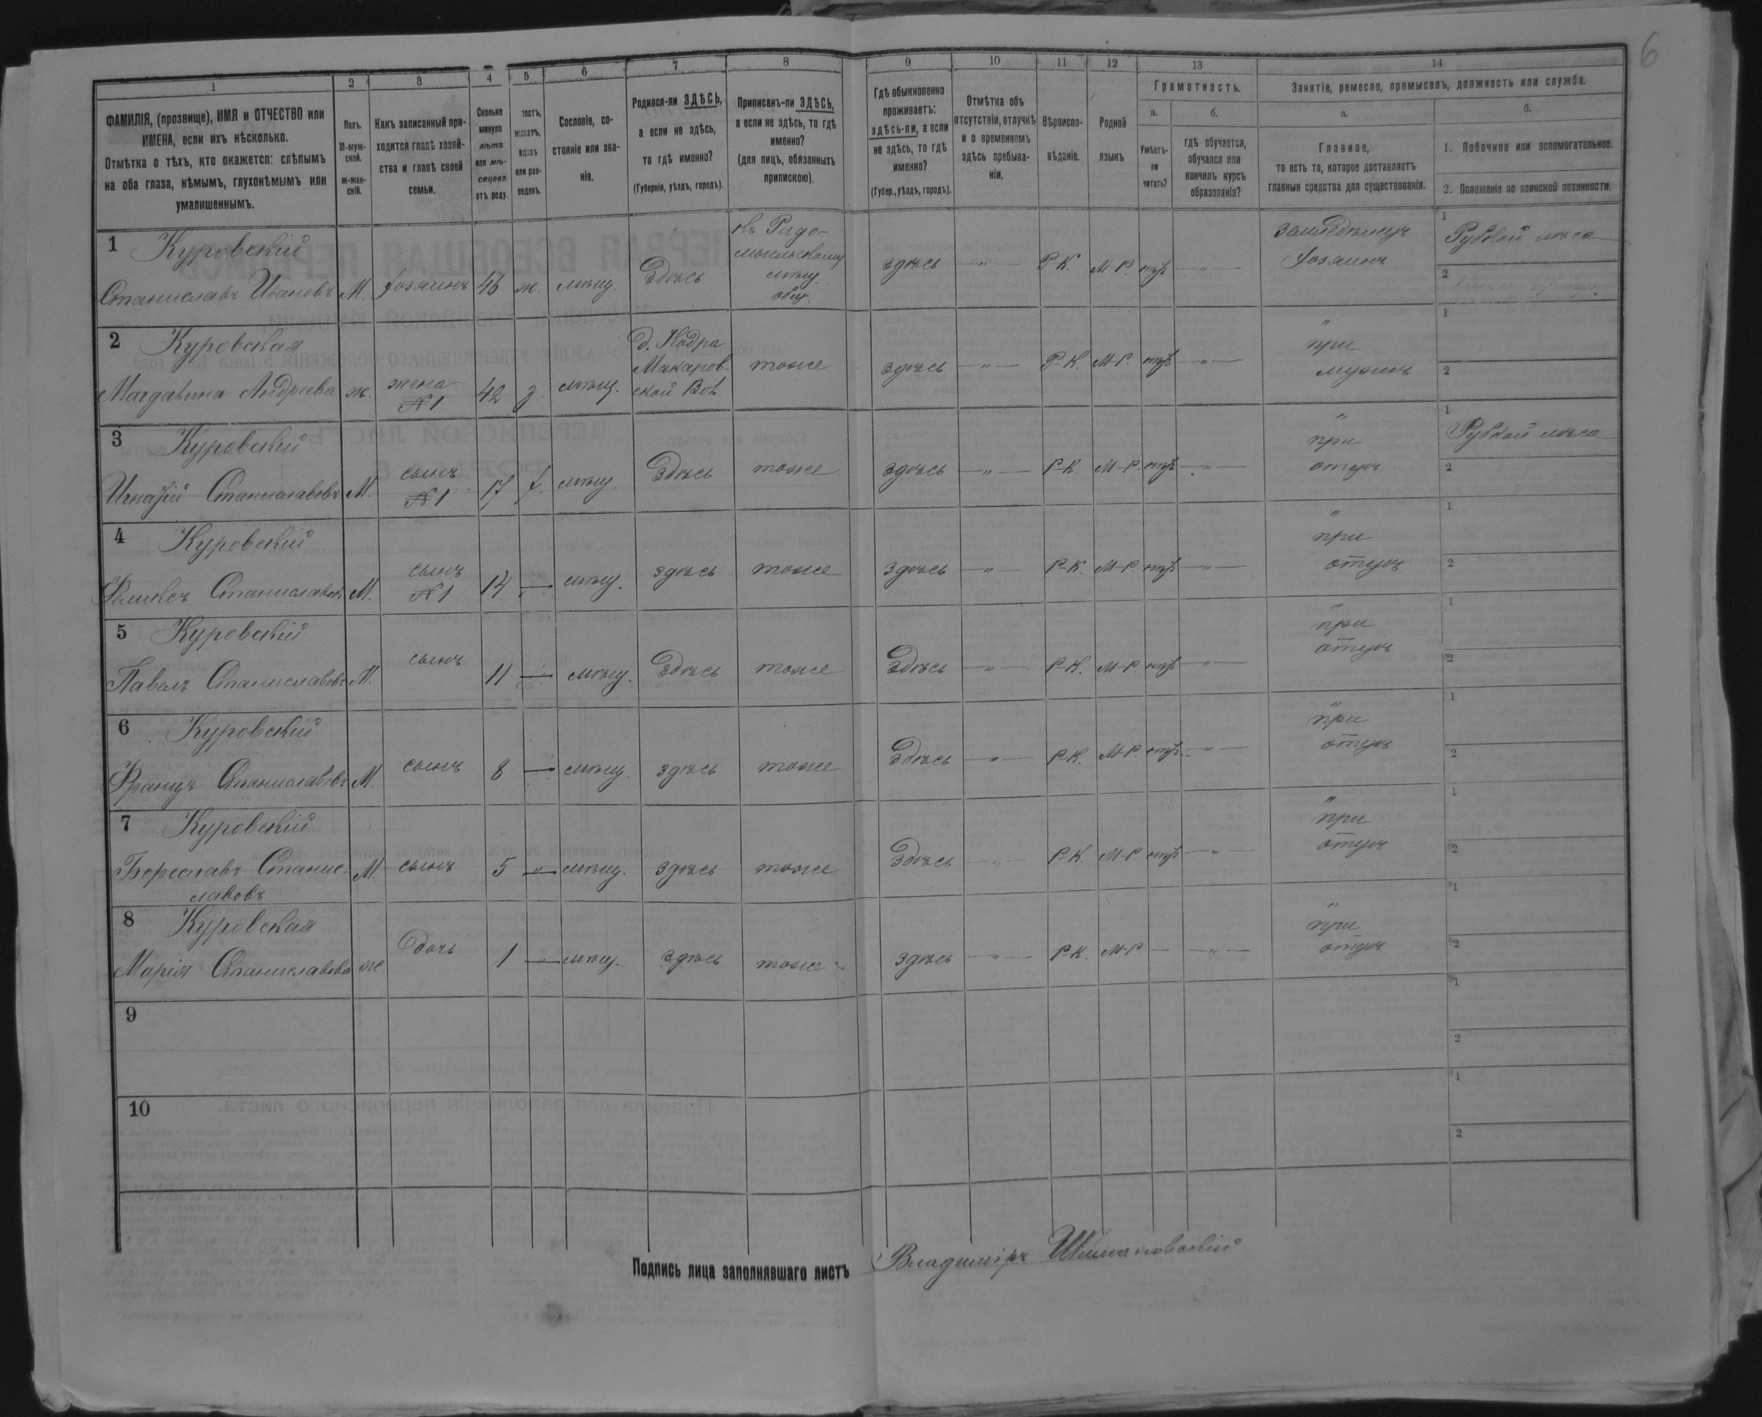 6
1 2 3 4 5 6 7 8 9 10 11 12 13 14
ФАМИЛІЯ, (прозвище), ИМЯ и ОТЧЕСТВО или
ИМЕНА, если ихъ нѣсколько.
Отмѣтка о тѣхъ, кто окажется: слѣпымъ
на оба глаза, нѣмымъ, глухонѣмымъ или
умалишеннымъ.
Полъ.
М-муж-
ской.
Ж-жен-
скій.
Какъ записанный при-
ходится главѣ хозяй-
ства и главѣ своей
семьи.
Сколько
минуло
лѣтъ
или мѣ-
сяцевъ
отъ роду.
холостъ,
женатъ,
вдовъ
или раз-
веденъ.
Сословіе, со-
стояніе или зва-
ніе.
Родился-ли ЗДѢСЬ,
а если не здѣсь,
то гдѣ именно?
(Губернія, уѣздъ, городъ).
Приписанъ-ли ЗДѢСЬ,
а если не здѣсь, то гдѣ
именно?
(для лицъ, обязанныхъ
припискою).
Гдѣ обыкновенно
проживаетъ:
здѣсь-ли, а если
не здѣсь, то гдѣ
именно?
(Губер., уѣздъ, городъ).
Отмѣтка объ
отсутствіи, отлучкѣ
и о временномъ
здѣсь пребыва-
ніи.
Вѣроиспо-
вѣданіе.
Родной
языкъ
Грамотность.
а. б.
Умѣетъ-
ли
читать?
гдѣ обучается,
обучался или
кончилъ курсъ
образованія?
Занятіе, ремесло, промыселъ, должность или служба.
а. б.
Главное,
то есть то, которое доставляетъ
главныя средства для существованія.
1. Побочное или вспомогательное.
2. Положеніе по воинской повинности.
1 Куровскій
Станиславъ Ивановъ М. хозяинъ 46 ж. мѣщ. Здѣсь
въ Радо-
мысльскому
мѣщ.
общ.
здѣсь — „ — Р-К. М-Р. нѣтъ — „ —
земледѣлецъ
хозяинъ
1 Рубкой лѣса
2
2 Куровская
Магдалина Андреева ж. жена
№1 42 з. мѣщ.
Макаров-
ской Вол
тоже здѣсь — „ — Р-К. М-Р. нѣтъ — „ —
„
при
мужѣ
1
2
3 Куровскій
Игнатій Станиславовъ М. сынъ
№1 17 х. мѣщ. Здѣсь тоже здѣсь — „ — Р-К. М-Р. нѣтъ — „ —
„
при
отцѣ
1 Рубкой лѣса
2
4 Куровскій
Феликсъ Станиславовъ М. сынъ
№1 14 — мѣщ. здѣсь тоже здѣсь — „ — Р-К. М-Р. нѣтъ — „ —
„
при
отцѣ
1
2
5 Куровскій
Павелъ Станиславовъ М. сынъ 11 — мѣщ. Здѣсь тоже Здѣсь — „ — Р-К. М-Р. нѣтъ — „ —
„
при
отцѣ
1
2
6 Куровскій
Францъ Станиславовъ М. сынъ 8 — мѣщ. здѣсь тоже Здѣсь — „ — Р-К. М-Р. нѣтъ — „ —
„
при
отцѣ
1
2
7 Куровскій
Станис-
лавовъ
М сынъ 5 — мѣщ. здѣсь тоже Здѣсь — „ — Р-К. М-Р. нѣтъ — „ —
„
при
отцѣ
1
2
8 Куровская
Марія Станиславова ж. дочь 1 — мѣщ. здѣсь тоже здѣсь — „ — Р-К. М-Р. — — „ —
„
при
отцѣ
1
2
9
1
2
10
1
2
Подпись лица заполнявшаго листъ Владиміръ